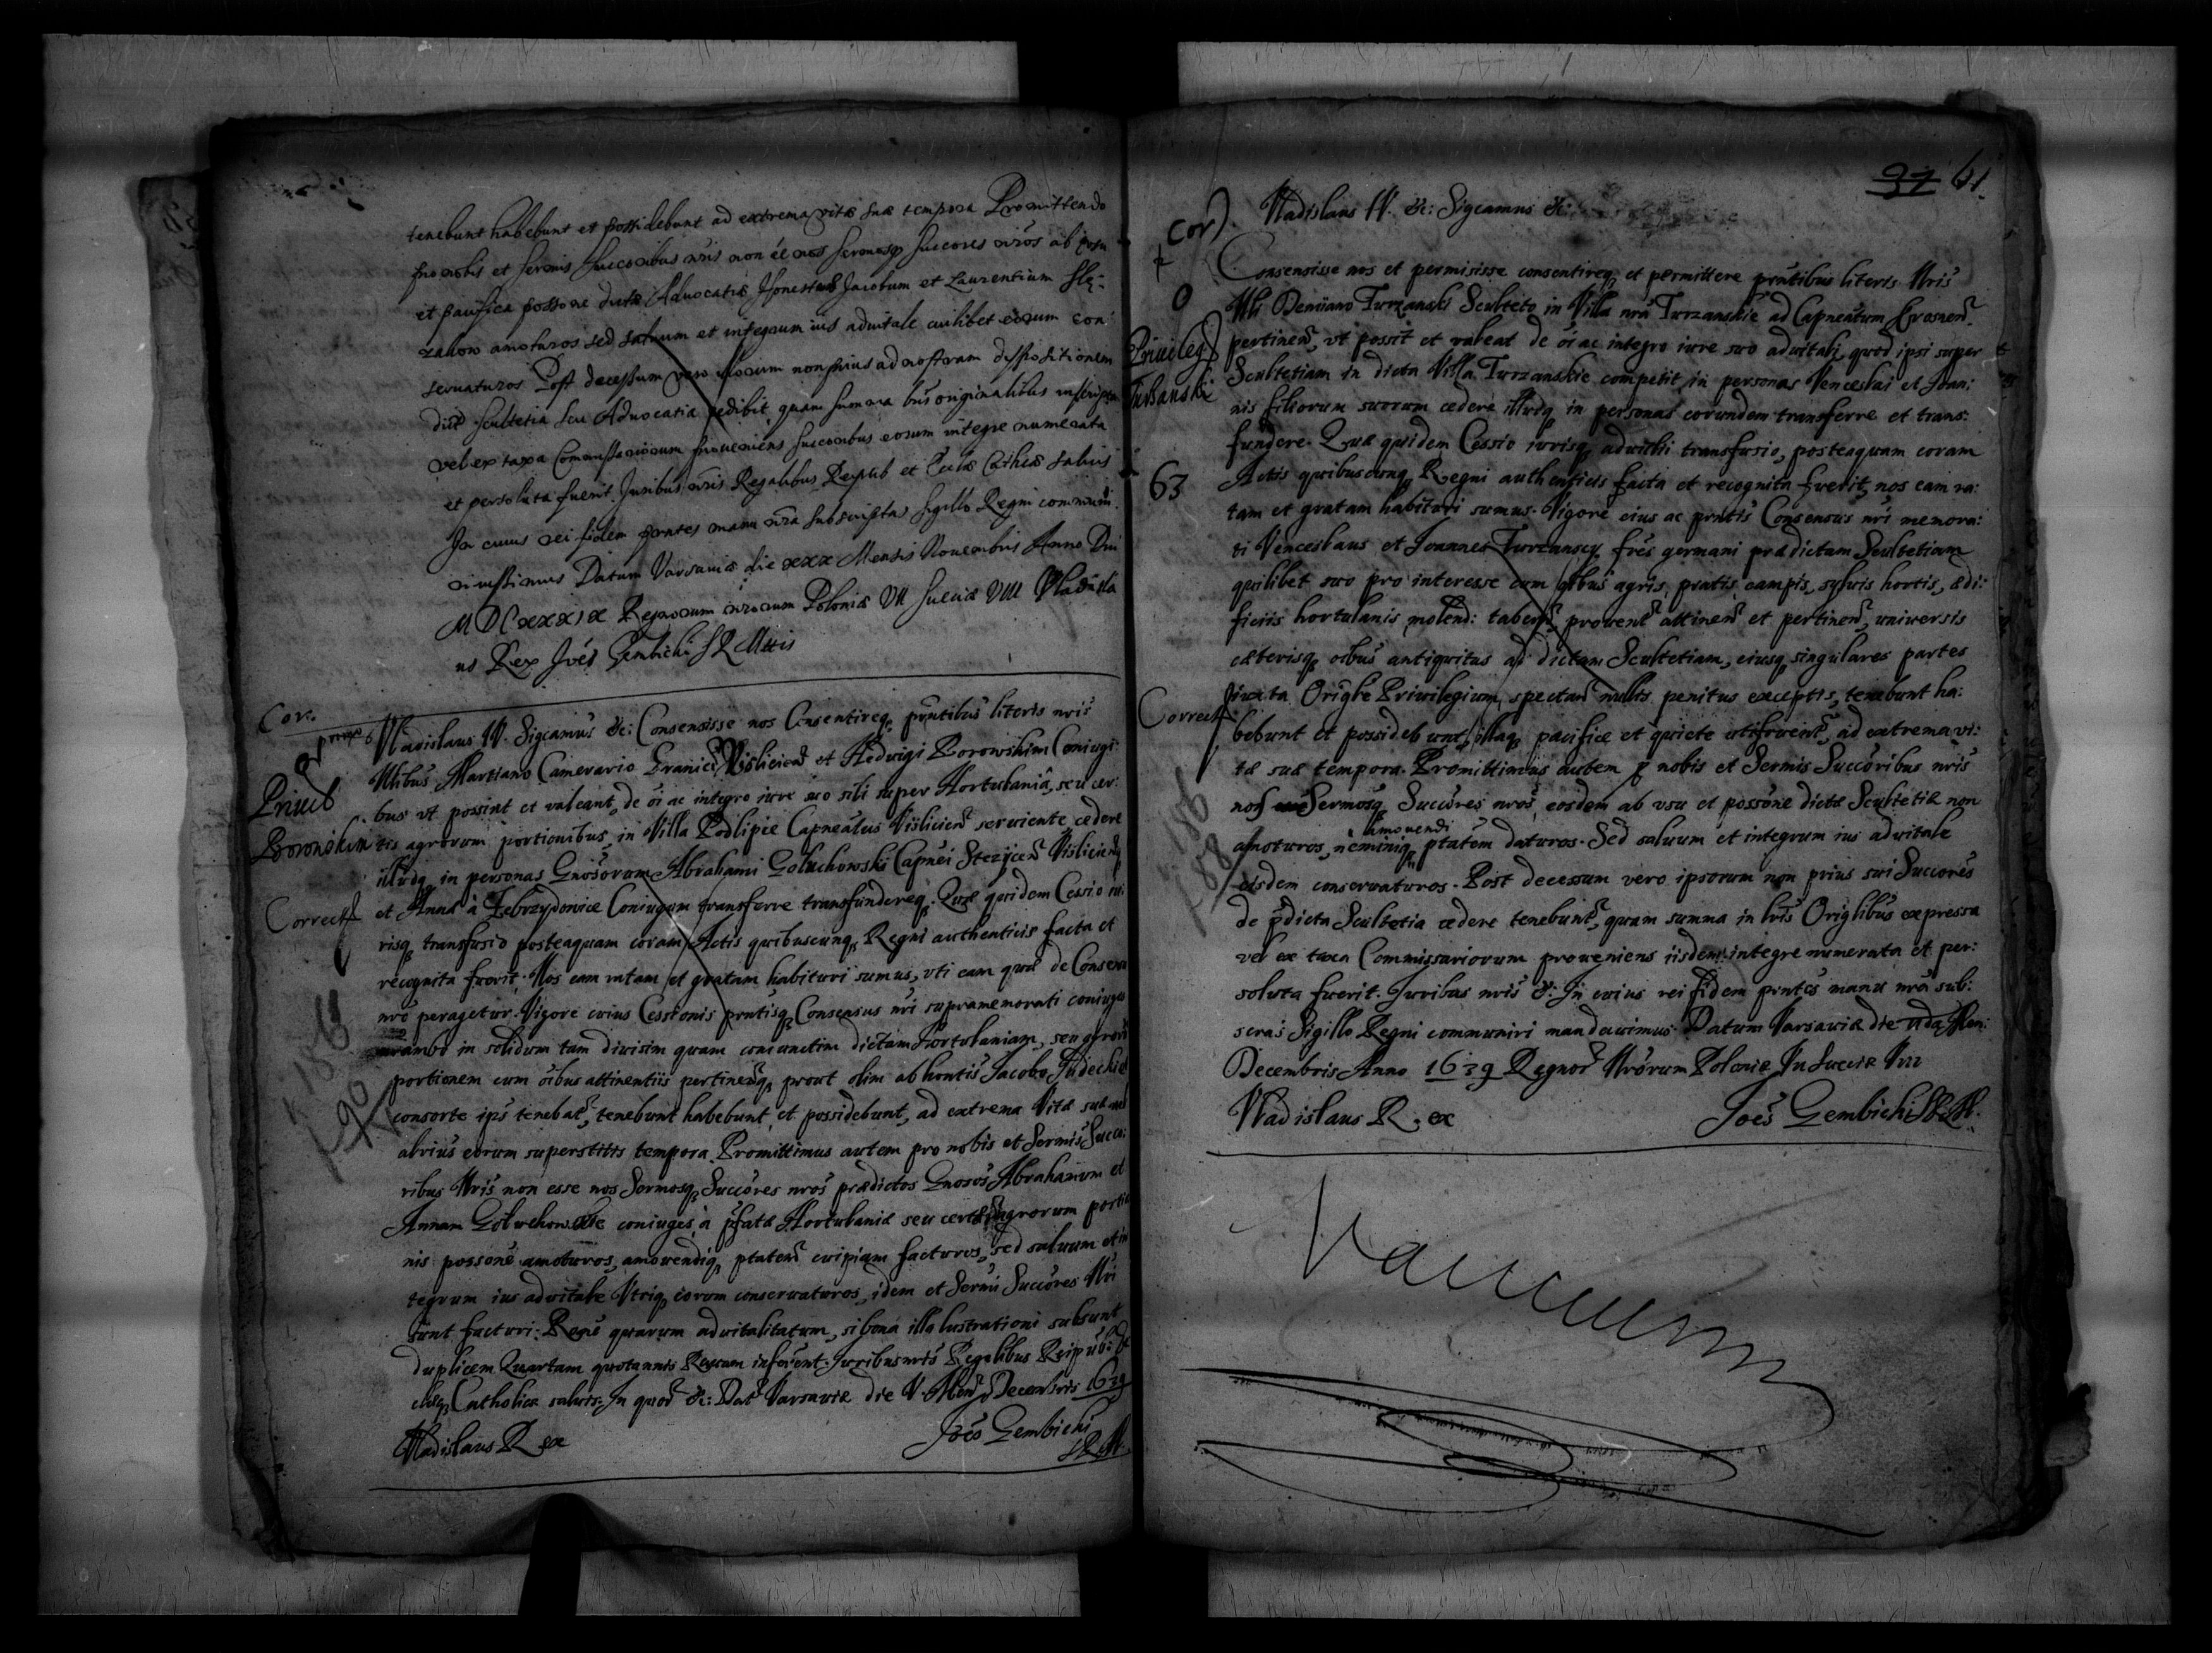 tenebunt habebunt et possidebunt ad extrema vitæ suæ tempora Promittendo
pro nobis et Sermis Succoribus nris non ée nos Sermosq Succores nros ab usu
et pacifica possone dictæ Advocatiæ Honestos Jacobum et Laurentium Slę-
zakow amoturos sed salvum et integrum ius advitale cuilibet eorum con
servaturos Post decessum vero illorum non prius ad nostram dispositionem
dicta Scultetia seu Advocatia redibit, quam summa bus originalibus inscripta
vel ex taxa Commissariorum proveniens succoribus eorum integre numerata
et persoluta fuerit. Juribus nris Regalibus Reipub et Eccles Cathcæ salvis
In cuius rei fidem pntes manu nra subscriptas Sigillo Regni communiri
iussimus Datum Varsaviæ die xxx Mensis Novembris Anno Dni
MDCxxxix Regnorum nrorum Poloniæ VII Sueciæ VIII Vladisla
us Rex Joés Gembicki S R Mtis
Cor.
Vladislaus IV. Sigcamus &c: Consensisse nos Consentireq; pntibus literis nris
Nlibus Martiano Camerario Granici Visliciens et Hedvigi Borowskim Coniugi
Privil
Borowskim
bus vt possint et valeant, de oi ac integro iure suo sili super Hortulaniâ, seu cer:
tis agrorum portionibus, in Villa Podlipie Capneatus Visliciens serviente cedere
illudq in personas Gnosorum Abrahami Goluchowski Capnei Stezycens Visliciens
et Annæ à Zebrzydowice Coniugum transferre transfundereq. Quæ quidem Cessio iu
Correct
risq transfusio posteaquam coram Actis quibuscunq Regni authenticis facta et
recognita fuerit. Nos eam ratam et gratam habituri sumus, vti eam quæ de Consensu
nro peragetur. Vigore cuius Cessionis pntisq Consensus nri supramemorati coniuges
ambo in solidum tam divisim quam coniunctim dictam Hortulaniam, seu agrorum
portionem cum oibus attinentiis pertinensq prout olim ab hontis Jacobo
consorte ips tenebat, tenebunt habebunt et possidebunt, ad extrema Vitæ suæ
alrius eorum superstitis tempora. Promittimus autem pro nobis et Sermis Succo:
ribus Nris non esse nos Sermosq Succores nros prædictos Gnosos Abrahamum et
Annam Goluchowskie coniuges à pfata Hortulania seu certa agrorum portio
nis possone amoturos, amovendiq ptatem cuipiam facturos, sed salvum et in
tegrum ius advitale Vtriq eorum conservaturos, idem et Sermi Succores Nri
sunt facturi. Rone quarum advitalitatum, si bona illa lustrationi subsunt
duplicem Quartam quotannis Rawam inferent. Juribus nris Regalibus Reipub: &
clesq Catholicæ salvis. In quor &c: Dat Varsaviæ die V. Mens Decembris 1639
Vladislaus R ex
Joés Gembicki
SRM.
97 61.
Cor)
Vladislaus IV. &c: Sigcamus &c:
Consensisse nos et permisisse consentireq et permittere pntibus literis Nris
Nli Demiano Turzanski Sculteto in Villa nra Turzanskie ad Capneatum Crosnens.
Privileg
Turzanski
pertinens, vt possit et valeat de oi ac integro iure suo advitali, quod ipsi super
Scultetiam in dicta Villa Turzanskie competit, in personas Venceslai et Joan:
nis filiorum suorum cedere illudq in personas eorundem transferre et trans:
fundere. Quæ quidem Cessio iurisq advitlis transfusio, posteaquam coram
63
Actis quibuscunq Regni authenticis facta et recognita fuerit, nos eam ra:
tam et gratam habituri sumus. Vigore eius ac pntis Consensus nri memora:
ti Venceslaus et Joannes Turzanscy frés germani prædictam Scultetiam
quilibet suo pro interesse cum oibus agris, pratis, campis, sylvis hortis, ædi:
ficiis hortulanis molend: tabern, provent attinens et pertinens, universis
cæterisq oibus antiquitus ad dictam Scultetiam, eiusq singulares partes
Correct
iuxta Origle Privilegium, spectan nullis penitus exceptis, tenebunt ha:
bebunt et possidebunt, illaq pacifice et quiete utifruent, ad extrema vi:
tæ suæ tempora. Promittimus autem p nobis et Sermis Succoribus nris
nos Sermosq Succores nros, eosdem ab vsu et possone dictæ Scultetiæ non
amoturos, neminiq amovendi ptatem daturos. Sed salvum et integrum ius advitale
eisdem conservaturos. Post decessum vero ipsorum non prius sui Succores
de pdicta Scultetia cedere tenebunt, quam summa in lris Origlibus expressa
vel ex taxa Commissariorum proveniens iisdem integre numerata et per:
soluta fuerit. Juribus nris &c: In cuius rei fidem pntes manu nra sub:
scras Sigillo Regni communiri mandavimus. Datum Varsaviæ die Men:
Decembris Anno 1639 Regnor Nrorum Poloniæ Sueciæ
Vladislaus R. ex
Joés Gembicki SRM.